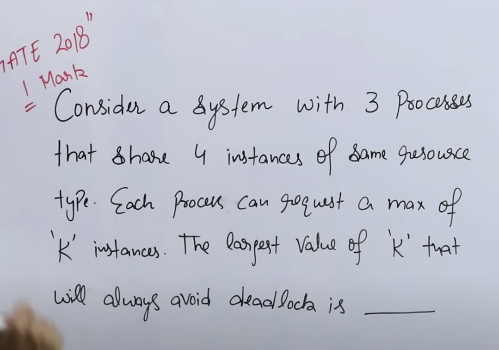 GATE 2018"
1 Mark
= Consider a system with 3 Processes
that share 4 instances of same resource
type. Each Process can request a max of
'K' instances. The largest value of 'K' that
will always avoid deadlock is ______